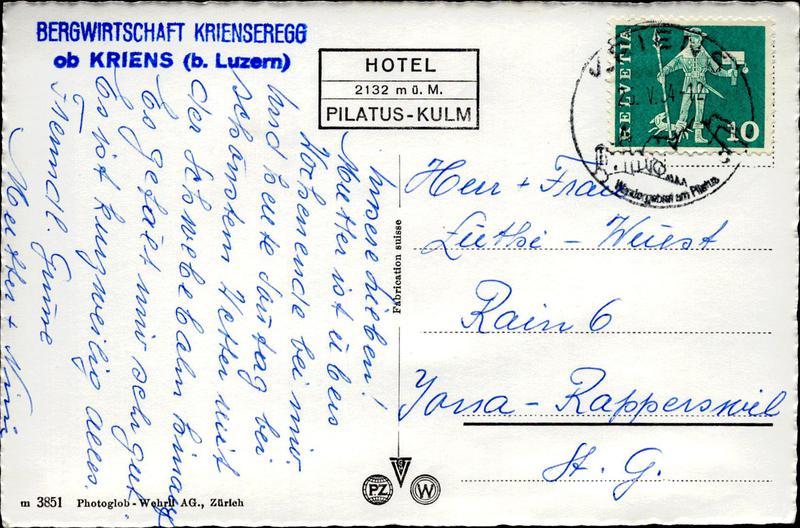 BERGWIRTSCHAFT KRIENSEREGG
ob KRIENS (b. Luzern)
HOTEL
2132 m ü. M.
PILATUS-KULM
HELVETIA
10
Wandergebiet am Pilatus
Unsere Lieben!
Mutter ist übers
Wochenende bei mir
und heute Sontag bei
schönstem Wetter mit
der Schwebebahn hinauf
Es gefällt mir sehr gut
Es ist kurzweilig alles.
Freundl. Grüsse
Mutter + Nini
Herr + Frau
Lüthi - Wüest
Rain 6
Jona - Rapperswil
St. G.
Fabrication suisse
m 3851 Photoglob-Wehrli AG., Zürich
PZ
W